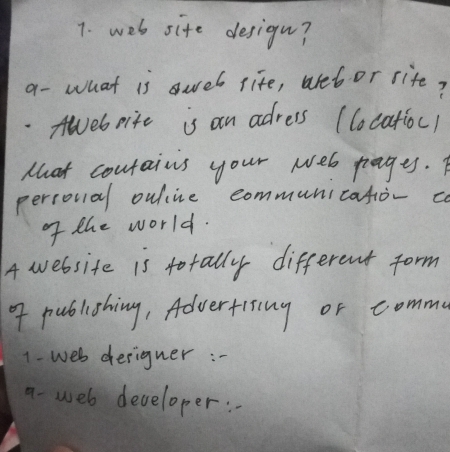 1. web site design?
a- what is a web site, web or site?
. A Web site is an adress (location)
that contains your web pages.
personal online communication
of the world.
A website is totally different form
of publishing, Advertising or commu
1- web designer :-
a- web developer :-